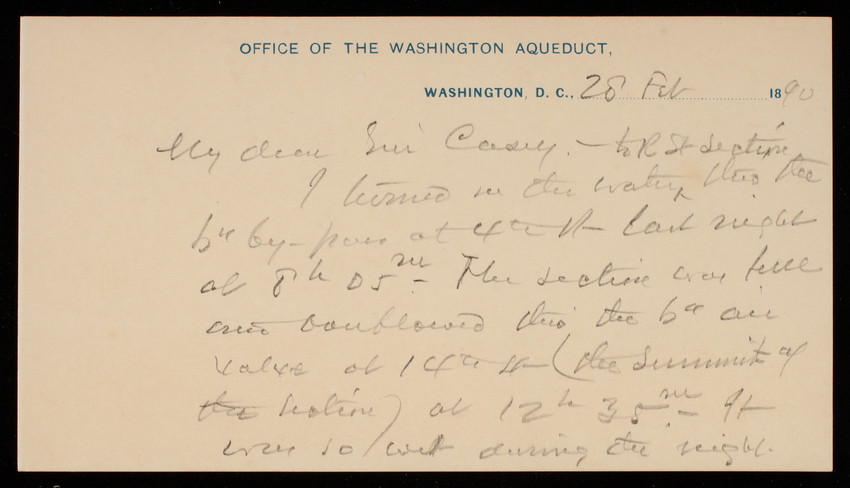 OFFICE OF THE WASHINGTON AQUEDUCT,
WASHINGTON, D. C., 28 Feb 1890
My dear Casey. — to R St section,
I turned in the water, thro the
6" by-pass at 4th St last night
at 8h 05m — The section was full
and overflowed thro the 6" air
valve at 14th St (the summit of
the section) at 12h 35m — It
was so wet during the night.